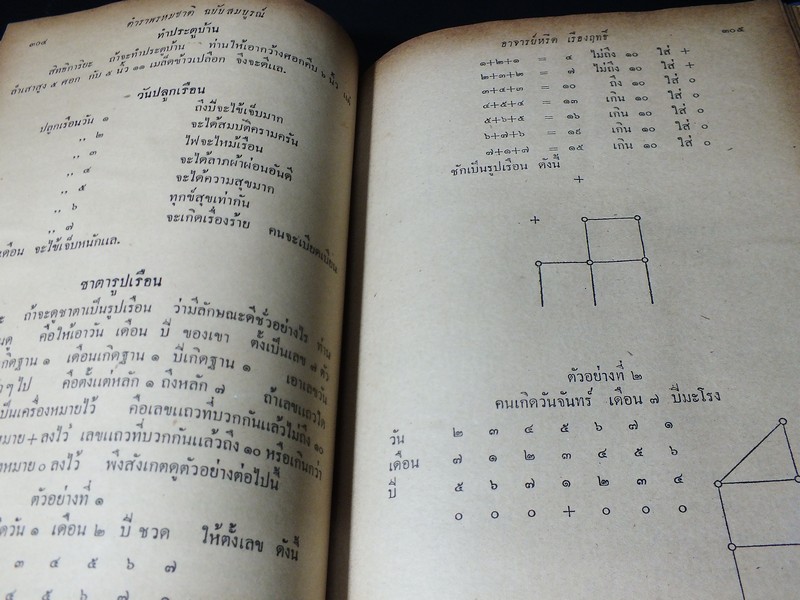 ๓๐๔ ตำราพรหมชาติ ฉบับสมบูรณ์
ทำประตูบ้าน
สิทธิการิยะ ถ้าจะทำประตูบ้าน ท่านให้เอากว้างศอกคืบ ๒ นิ้ว
ลำเสาสูง ๕ ศอก กับ ๕ นิ้ว ๑๑ เมล็ดข้าวเปลือก จึงจะดีแล.
วันปลูกเรือน
ปลูกเรือนวัน ๑ ถึงปีจะไข้เจ็บมาก
,, ๒ จะได้สมบัติครามครัน
,, ๓ ไฟจะไหม้เรือน
,, ๔ จะได้ลาภผ้าผ่อนอันดี
,, ๕ จะได้ความสุขมาก
,, ๖ ทุกข์สุขเท่ากัน
,, ๗ จะเกิดเรื่องร้าย คนจะเบียดเบียน
เดือน จะไข้เจ็บหนักแล.
ชาตารูปเรือน
ถ้าจะดูชาตาเป็นรูปเรือน ว่ามีลักษณะดีชั่วอย่างไร ท่าน
คือให้เอาวัน เดือน ปี ของเขา ตั้งเป็นเลข ๗ ตัว
เกิดฐาน ๑ เดือนเกิดฐาน ๑ ปีเกิดฐาน ๑ เอาเลขวัน
ๆไป คือตั้งแต่หลัก ๑ ถึงหลัก ๗ ถ้าเลขแถวใด
เป็นเครื่องหมายไว้ คือเลขแถวที่บวกกันแล้วไม่ถึง ๑๐
หมาย + ลงไว้ เลขแถวที่บวกกันแล้วถึง ๑๐ หรือเกินกว่า
หมาย ๐ ลงไว้ พึงสังเกตดูตัวอย่างต่อไปนี้
ตัวอย่างที่ ๑
วัน ๑ เดือน ๒ ปี ชวด ให้ตั้งเลข ดังนี้
๓ ๔ ๕ ๖ ๗
๔ ๕ ๖ ๗ ๑
อาจารย์หรีด เรืองฤทธิ์ ๓๐๕
๑+๒+๑ = ๔ ไม่ถึง ๑๐ ใส่ +
๒+๓+๒ = ๗ ไม่ถึง ๑๐ ใส่ +
๓+๔+๓ = ๑๐ ถึง ๑๐ ใส่ ๐
๔+๕+๔ = ๑๓ เกิน ๑๐ ใส่ ๐
๕+๖+๕ = ๑๖ เกิน ๑๐ ใส่ ๐
๖+๗+๖ = ๑๙ เกิน ๑๐ ใส่ ๐
๗+๑+๗ = ๑๕ เกิน ๑๐ ใส่ ๐
ชักเป็นรูปเรือน ดังนี้
+
+
ตัวอย่างที่ ๒
คนเกิดวันจันทร์ เดือน ๗ ปีมะโรง
วัน ๒ ๓ ๔ ๕ ๖ ๗ ๑
เดือน ๗ ๑ ๒ ๓ ๔ ๕ ๖
ปี ๕ ๖ ๗ ๑ ๒ ๓ ๔
๐ ๐ ๐ + ๐ ๐ ๐